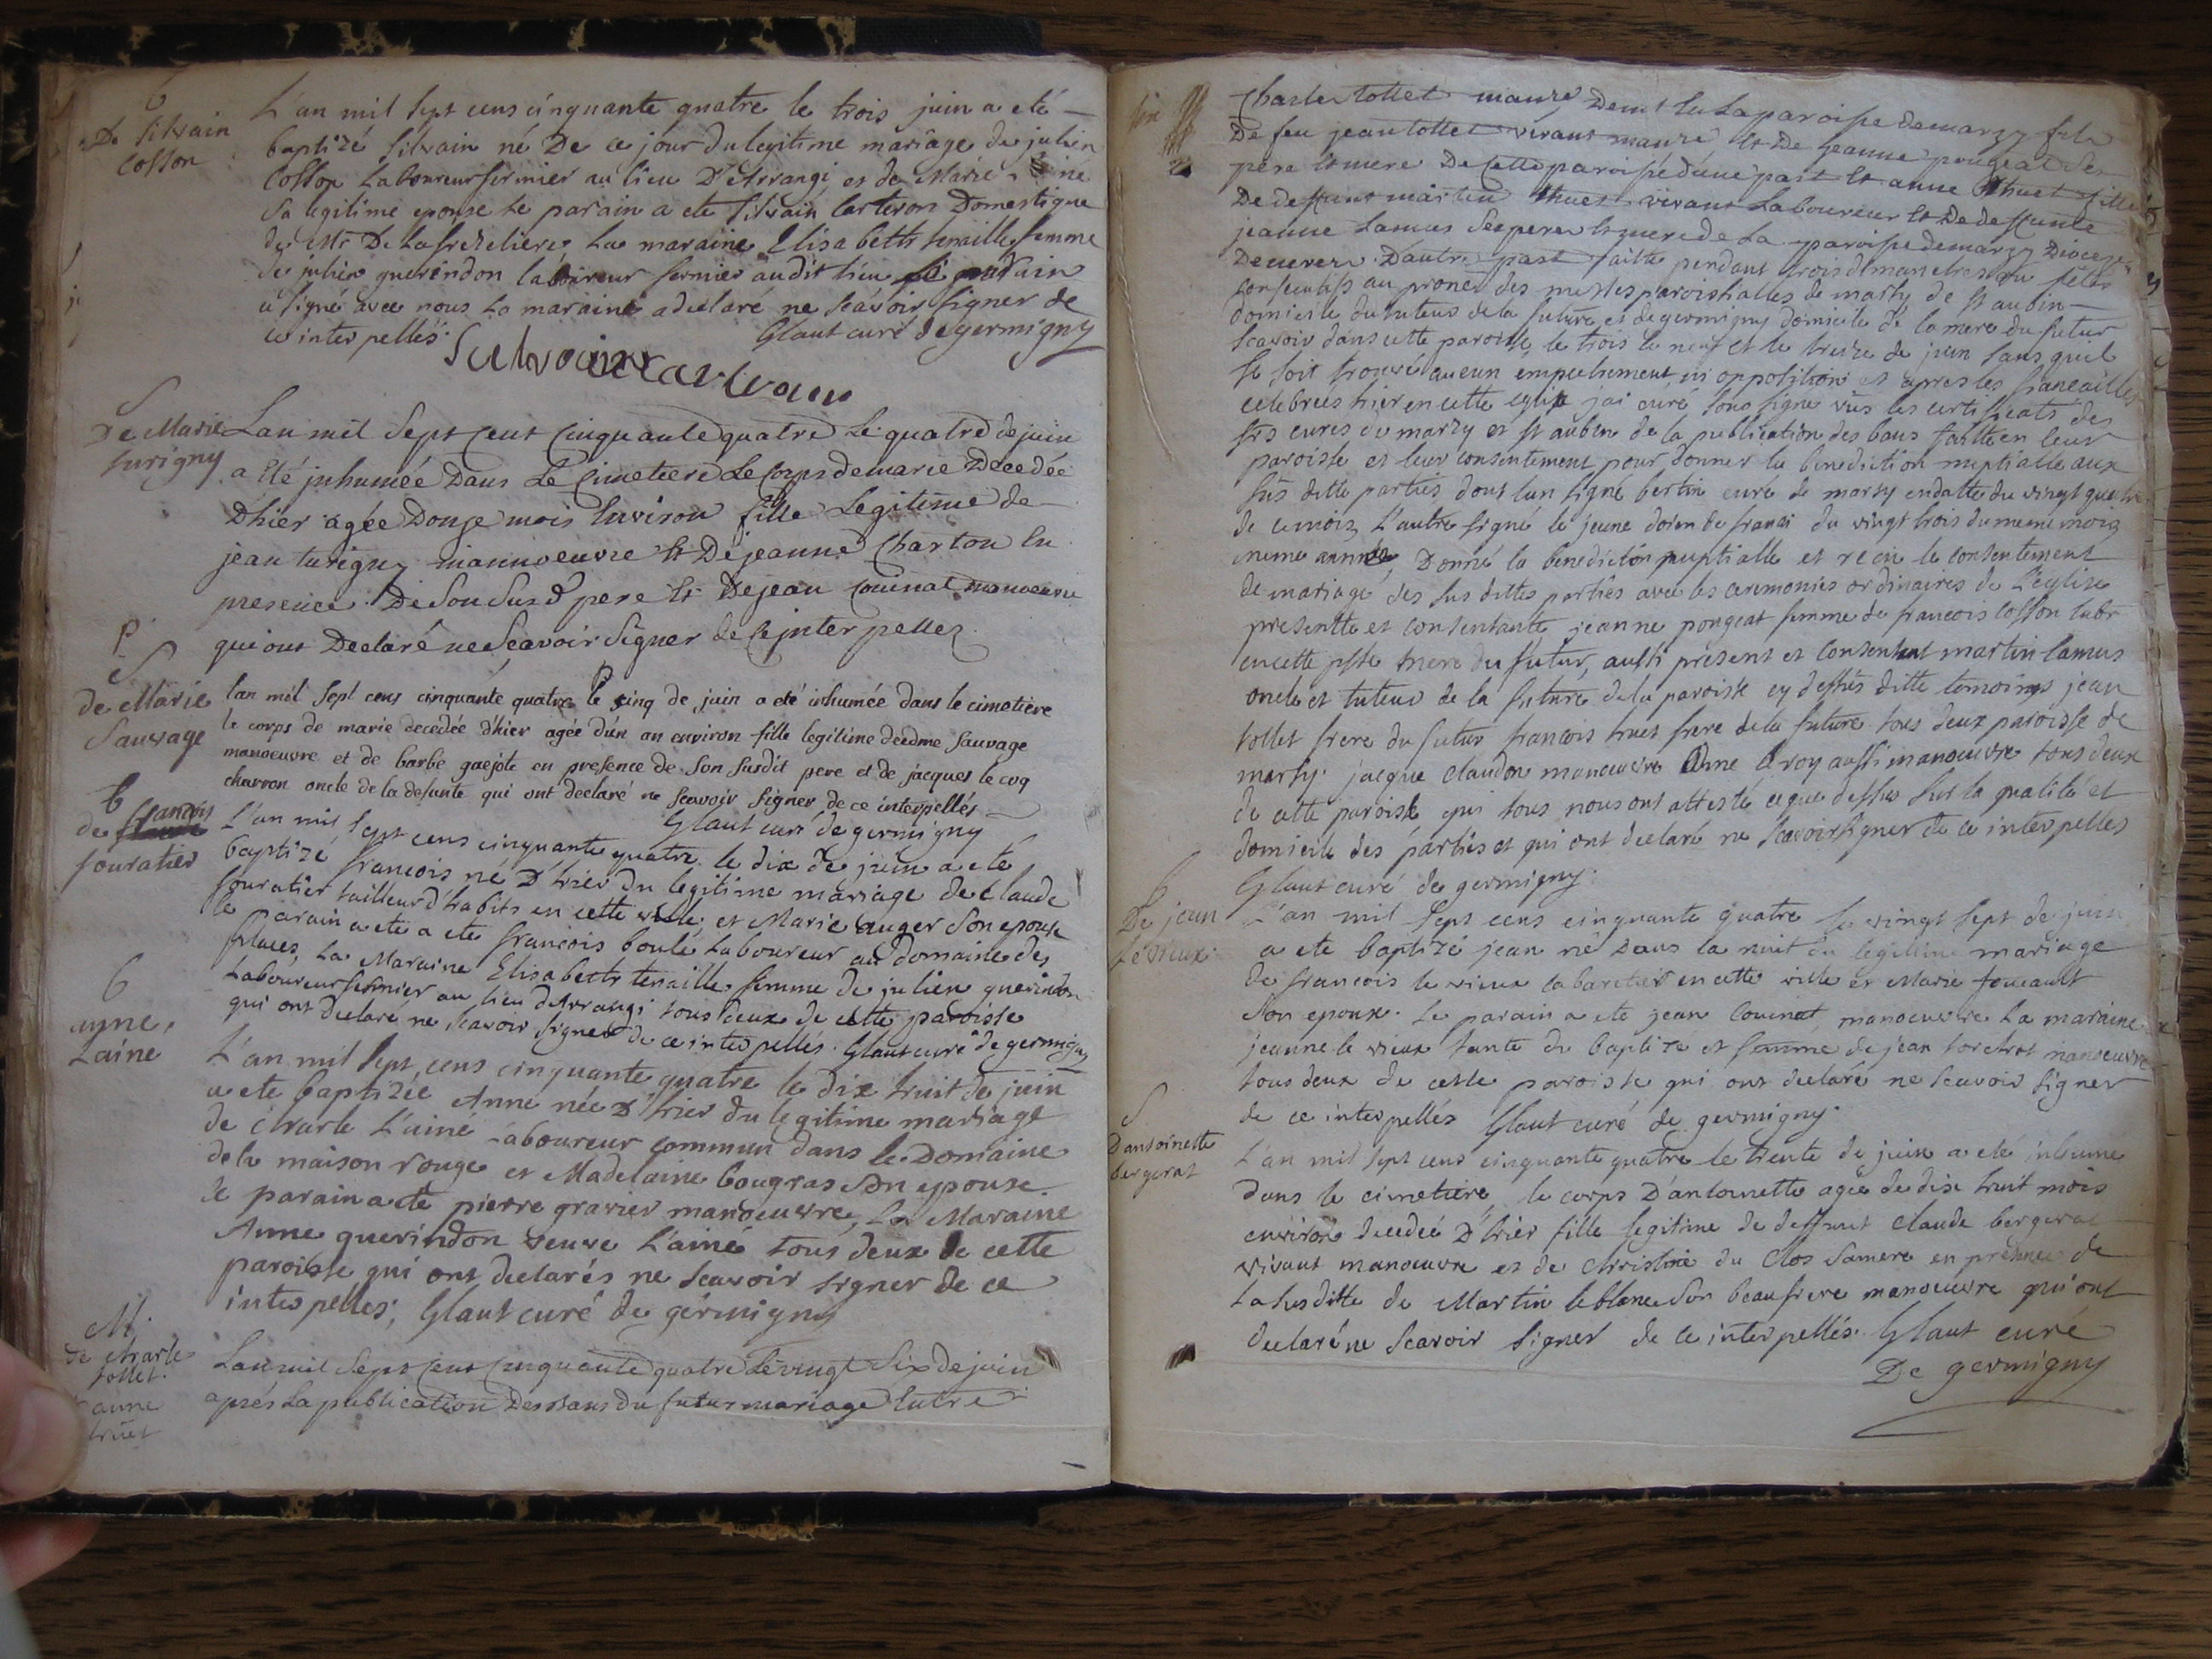 B
De Silvain
Cosson
L'an mil sept cens cinquante quatre le trois juin a eté
baptizé silvain né De ce jour du legitime mariage de julien
Cosson Laboureur fermier au lieu D'Arrangi, et de Marie
Sa legitime epouse le parain a ete silvain Carteron Domestique
de Mr De Lafrezeliere, La maraine Elisabeth tenaille femme
de julien guerindon laboureur fermier audit lieu le parain
a signé avec nous La maraine a declaré ne scavoir signer de
ce interpellés. Glaut curé de germigny
S
De Marie
turigny
Lan mil Sept Cent Cinquante quatre Le quatre de juin
a Eté inhumée Dans Le Cimetiere Le Corps de marie Decedée
D'hier agée Donze mois Environ fille Legitime de
jean turigny mannoeuvre Et De jeanne Charton En
presence De Son Susd pere Et De jean Couinat manoeuvre
qui ont Declaré ne Scavoir Signer de ce interpellez
P
S
de Marie
Sauvage
lan mil sept cens cinquante quatre le cinq de juin a eté inhumée dans le cimetière
le corps de marie decedée d'hier agée d'un an environ fille legitime deedme sauvage
manoeuvre et de barbe guejote en presence de son susdit pere et de jacques le coq
charron oncle de la defunte qui ont declaré ne scavoir signer de ce interpellés
Glaut curé de germigny
B
de francois
souratier
L'an mil sept cens cinquante quatre le dix de juin a eté
baptizé francois né D'hier du legitime mariage de claude
souratier tailleur d'habits en cette ville, et Marie auger son epouse
le parain a ete a ete francois boulé Laboureur au domaine des
places, La Maraine Elisabeth tenaille femme de julien guerindon
Laboureur fermier au lieu d'Arrangi tous deux de cette paroisse
qui ont declaré ne scavoir signer de ce interpellés. Glaut curé de germigny
B
anne
Lainé
L'an mil sept cens cinquante quatre le dix huit de juin
a ete baptizée Anne née D'hier du legitime mariage
de charle L'ainé Laboureur commun dans le Domaine
de la maison rouge et Madelaine bougras son epouse
le parain a ete pierre gravier manoeuvre, La Maraine
Anne guerindon veuve L'ainé tous deux de cette
paroisse qui ont declarés ne scavoir signer de ce
interpellés, Glaut curé de germigny
M.
de charle
tollet.
anne
huet
Lan mil Sept Cent Cinquante quatre Le vingt Six de juin
aprés La publication Des bans du futur mariage Entre
Charles tollet manre Demt En La paroisse de marzy fils
De feu jean tollet vivant manre Et De jeanne pougeat Ses
pere Et mere De Cette paroisse d'une part Et anne huet fille
De deffunt martin huet vivant Laboureur Et De deffunte
jeanne Lamus Ses pere Et mere de La paroisse de marzy Diocese
De nevers D'autre part faitte pendant trois dimanches ou fêtes
consecutifs au prone des messes paroissialles de marsy de st aubin
domicile du tuteur de la future et de germigny domicile de la mere du futur
scavoir dans cette paroisse le trois le neuf et le treize de juin sans quil
se soit trouvé aucun empechement ni opposition et apres les fiancailles
celebrees hier en cette eglise jai curé sous signé vus les certificats des
srs curés de marzy et st aubin de la publication des bans faitte en leur
paroisse et leur consentement pour donner la benediction nuptialle aux
sus ditte parties dont lun signé bertin curé de marsy en datte du vingt quatre
de ce mois L'autre signé le jeune doien de franci du vingt trois du meme mois
meme année, Donné la benediction nuptialle et recu le consentement
de mariage des sus dittes parties avec les ceremonies ordinaires de L'eglise
presente et consentante jeanne pougeat femme de francois cosson labr
en cette psse mere du futur, aussi present et consentant martin lamus
oncle et tuteur de la future de la paroisse cy dessus ditte temoins jean
tollet frere du futur francois huet frere de la future tous deux paroisse de
marsy. jacque claudon manoeuvre Edme leroy aussi manoeuvre tous deux
de cette paroisse qui tous nous ont attesté ce que dessus sur la qualité et
domicile des parties et qui ont declaré ne scavoir signer de ce interpelles
Glaut curé de germigny.
B
De jean
le vieux.
L'an mil sept cens cinquante quatre le vingt sept de juin
a ete baptizé jean né Dans la nuit du legitime mariage
de francois le vieux cabaretier en cette ville et Marie foucault
son epouse. Le parain a ete jean Couinat, manoeuvre La maraine
jeanne le vieux tante du baptizé et femme de jean torchat manoeuvre
tous deux de cette paroisse qui ont declaré ne scavoir signer
de ce interpellés Glaut curé de germigny.
S
Dantoinette
bergerat
L'an mil sept cens cinquante quatre le trente de juin a eté inhumé
dans le cimetiere, le corps D'antoinette agée de dix huit mois
environ decedée D'hier fille legitime de deffunt claude bergerat
vivant manoeuvre et de christine du Clos sa mere en presence de
La susditte de Martin leblanc son beaufrere manoeuvre qui ont
declaré ne scavoir signer de ce interpellés. Glaut curé
De germigny